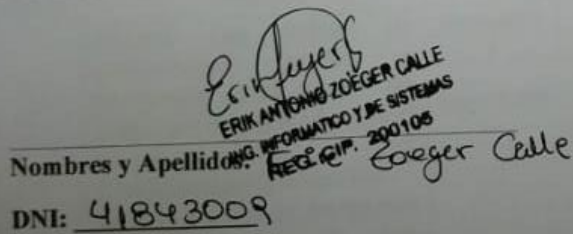 ERIK ANTONIO ZOEGER CALLE
ING. INFORMATICO Y DE SISTEMAS
REG. CIP. 200105
Nombres y Apellidos: Zoeger Calle
DNI: 41843009